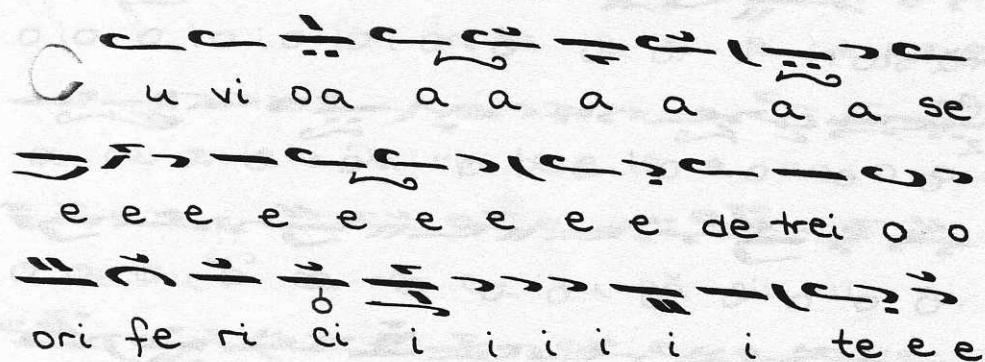 Cu vi oa a a a a a a se
e e e e e e e e e de trei o o
ori fe ri ci i i i i i i te e e